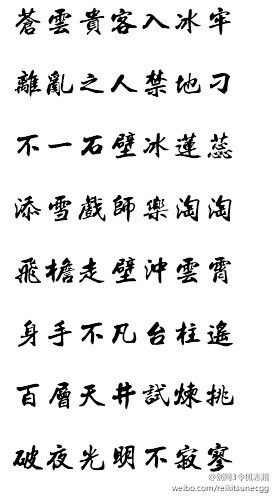 蒼雲貴客入冰牢
離亂之人禁地刁
不一石壁冰蓮蕊
添雪戲師樂淘淘
飛檐走壁沖雲霄
身手不凡台柱遙
百層天井試煉挑
破夜光明不寂寥
@剑网3令狐志超
weibo.com/reikitsunecgg